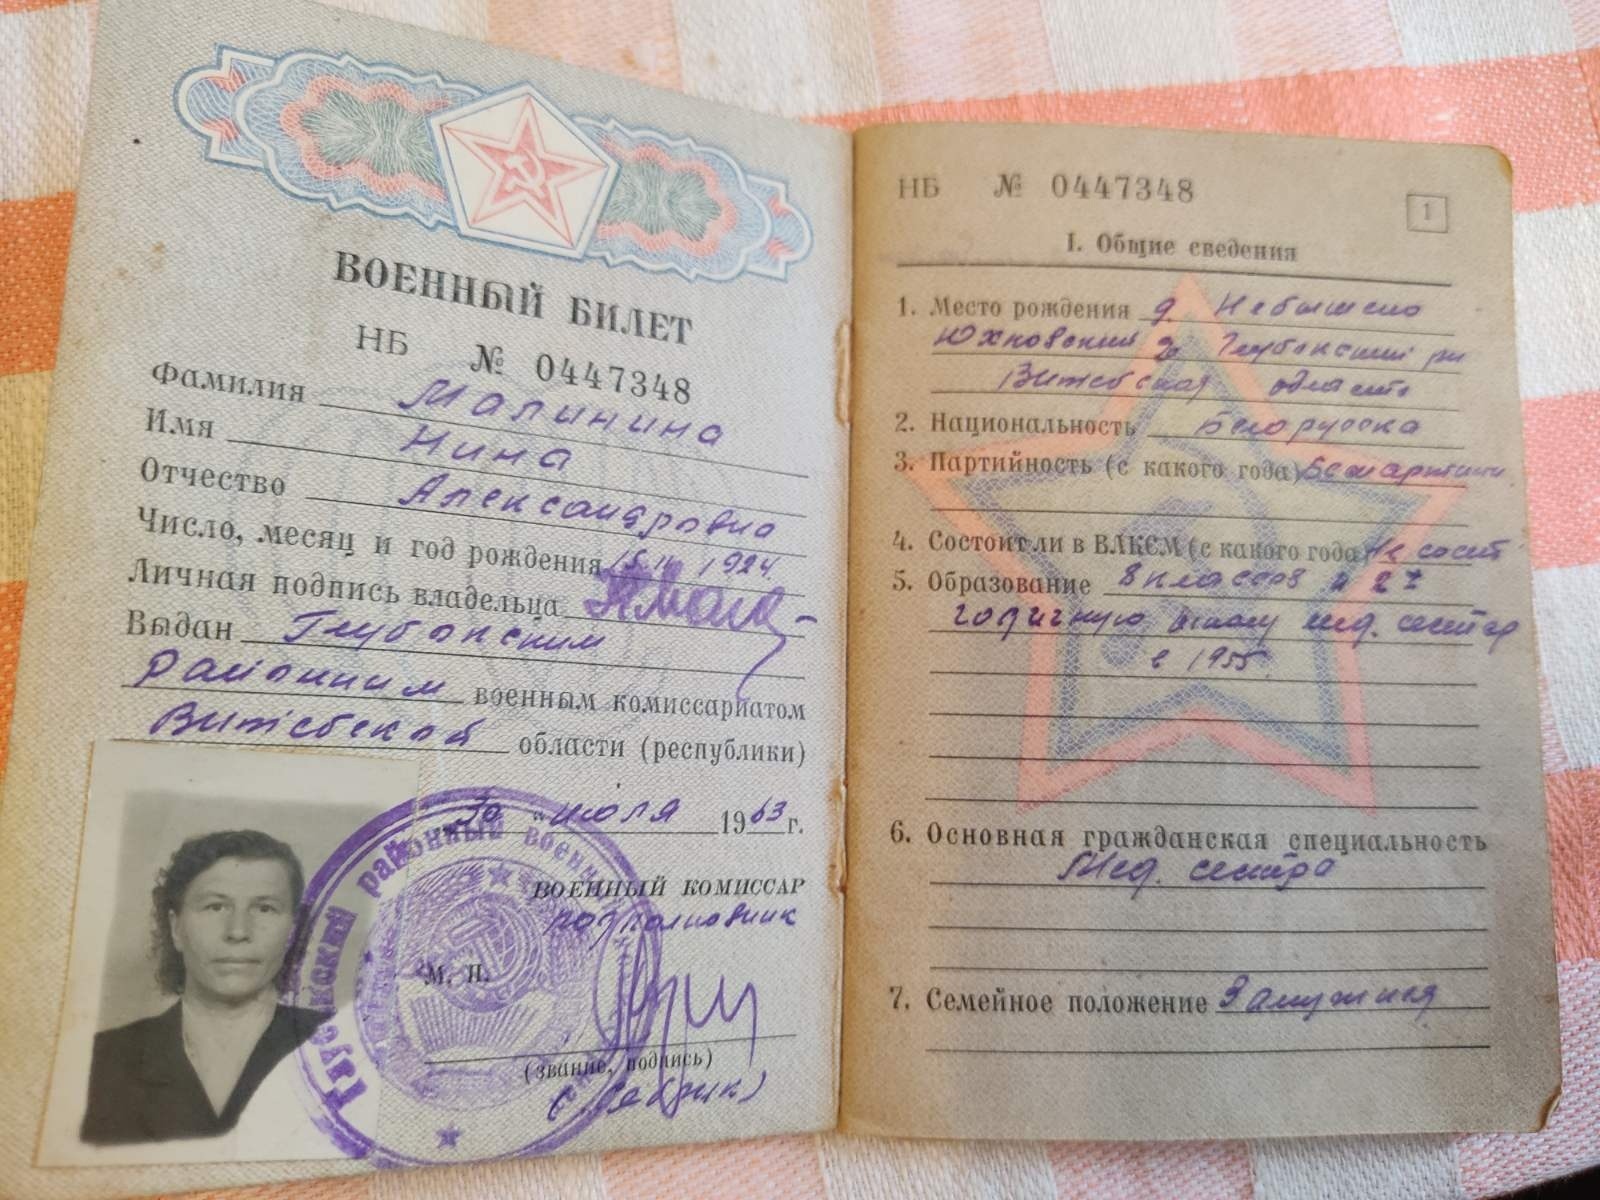 ВОЕННЫЙ БИЛЕТ
НБ № 0447348
Фамилия Малинина
Имя Нина
Отчество Александровна
Число, месяц и год рождения 15. 1924
Личная подпись владельца
Выдан Глубокским
районным военным комиссариатом
Витебской области (республики)
30 " июля 1963 г.
ВОЕННЫЙ КОМИССАР
подполковник
М. П.
(звание, подпись)
районный военн
НБ № 0447348
1
I. Общие сведения
1. Место рождения д.
Юхновский Глубокский рн
Витебская область
2. Национальность Белорусска
3. Партийность (с какого года) Беспартийн
4. Состоит ли в ВЛКСМ (с какого года) Не состит
5. Образование 8 классов и 2х
годичную школу мед. сестер
в 1955
6. Основная гражданская специальность
Мед. сестра
7. Семейное положение Замужняя